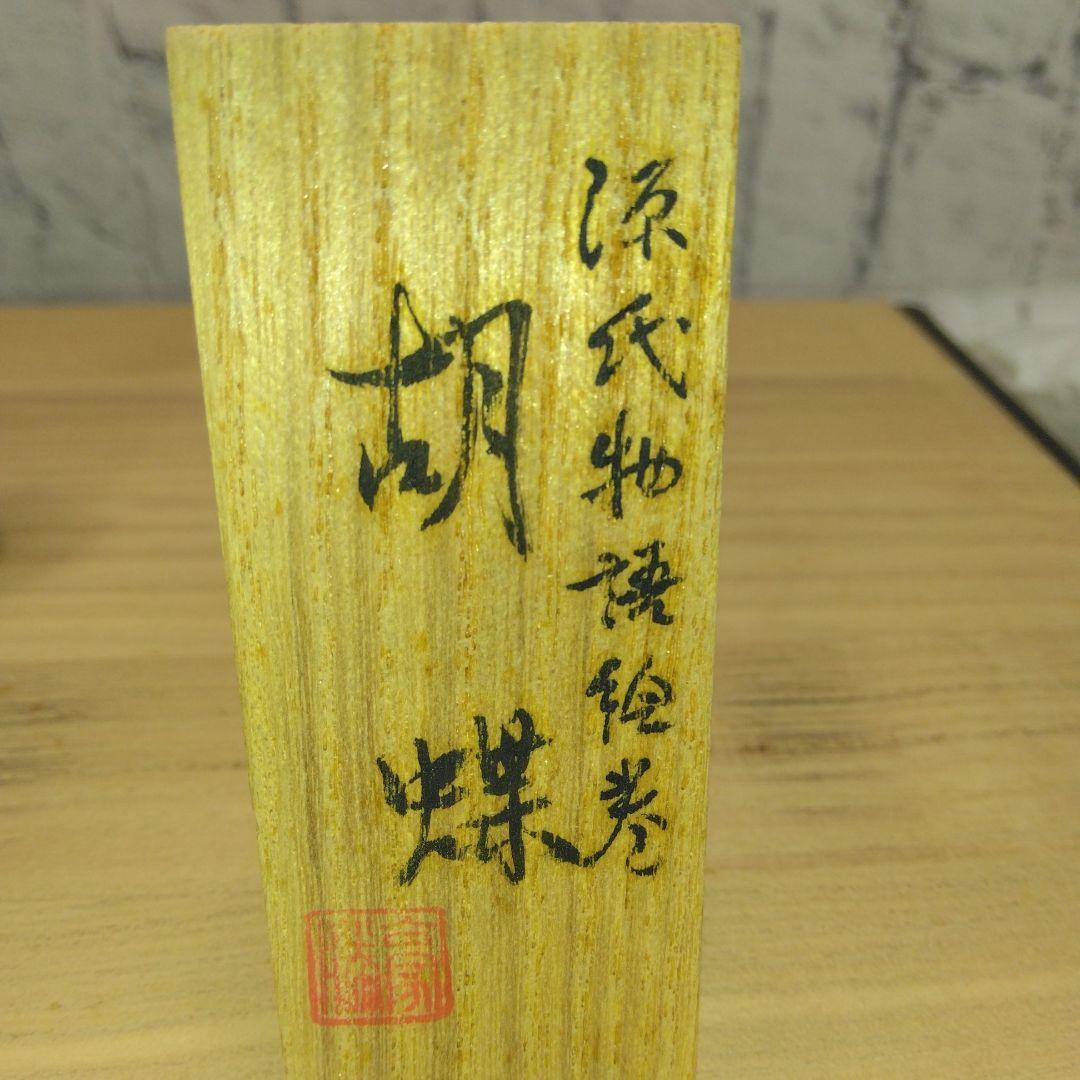 源氏物語絵巻
胡蝶